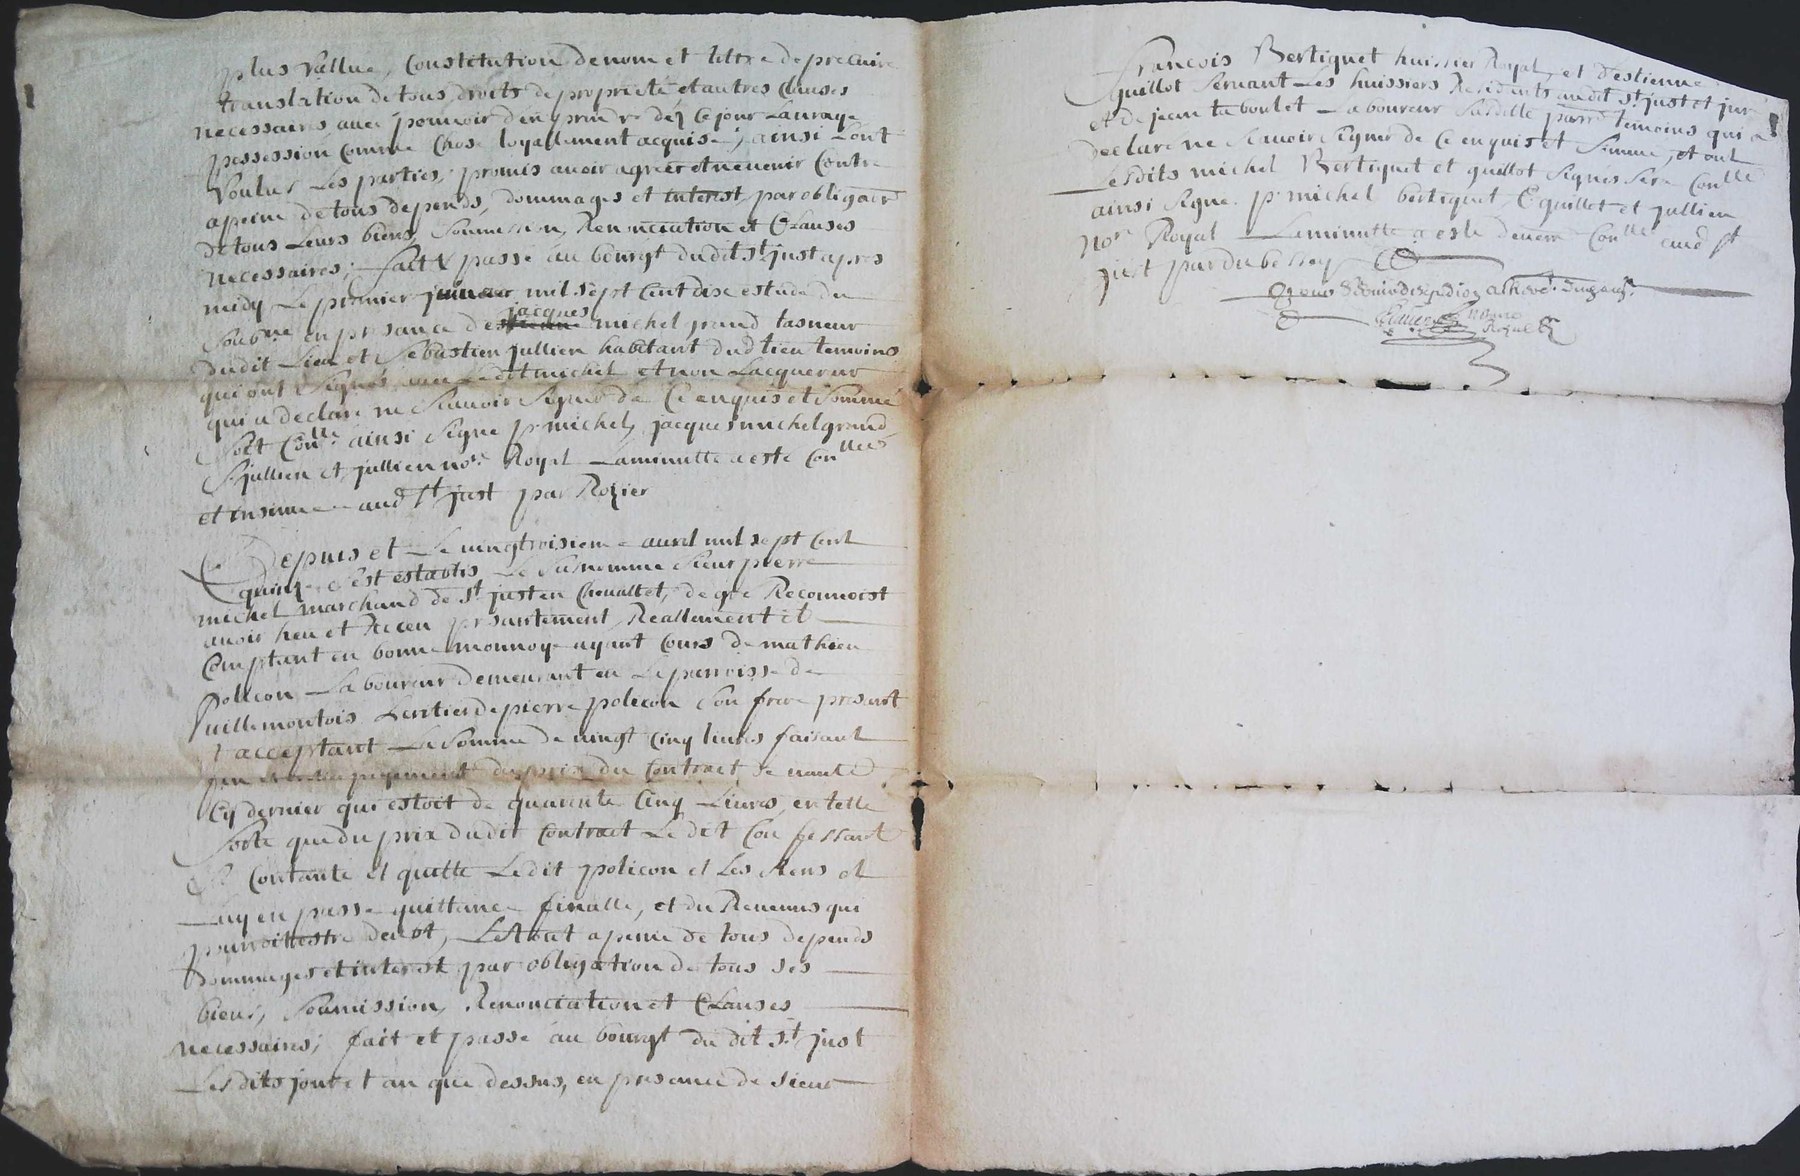 plus vallue, Constitution de nom et tittre de precaire
translation de tous droits de proprieté et autres Clauses
necessaires avec pouvoir d'en prendre déz Ce jour La vraye
possession Comme Chose loyallement acquise; ainsi L'ont
Voulus Les parties, promis avoir agreer et ne venir Contre
a peine de tous depends, dommages et interest, par obligaon
de tous Leurs biens, Soumission, Renonciation et Clauses
necessaires; fait & passé au bourgt dudit st just apres
midy Le premier mil sept Cent dix estude du
Soubne en presance de jacques michel grand tasneur
dudit Lieu et Sebastien jullien habitant dud lieu temoins
qui ont Signés avec Ledit michel et non Lacquereur
qui a declaré ne Scavoir Signer de Ce enquis et Sommé
Soit Conllé ainsi Signé p michel, jacques michel grand
S jullien et jullien nore Royal La minutte a esté Conllée
et insinuee aud st just par Rozier
Depuis et Le vingtroisieme avril mil sept Cent
quinze s'est establis Le Susnommé Sieur pierre
michel marchand de st just en Chevallet, de gre Reconnoist
avoir heu et Receu presantement, Reallement et
Comptant en bonne monnoye ayant Cours de mathieu
poliçon Laboureur demeurant en La parroisse de
Villemontois heritier de pierre poliçon Son frere presant
et acceptant La Somme de vingt Cinq livres faisant
fin et entier payement du prix du Contract de vante
Cy dernier qui estoit de quarente Cinq Livres, en telle
Sorte que du prix dudit Contract Le dit Confessant
Se Contante et quitte Ledit poliçon et Les Siens et
Luy en passe quittance finalle, et du Revenus qui
pourroit estre deubt, Le tout a peine de tous depends
dommages et interest par obligation de tous ses
biens, Soumission, Renonciation et Clauses
necessaires; fait et passé au bourgt du dit st just
Lesdits jour et an que dessus, en presance de Sieur
François Bertiquet huissier Royal, et d'estienne
guillot Servant Les huissiers Residents audit st just et jur
et de jean taboulet Laboureur Susdille parre temoins qui a
declaré ne Scavoir Signer de Ce enquis et Sommé, et ont
Lesdits michel Bertiquet et guillot Signes Sere Conllé
ainsi Signé p michel bertiquet, E guillot et jullien
nore Royal La minutte a esté Conllé aud st
just par dubessey